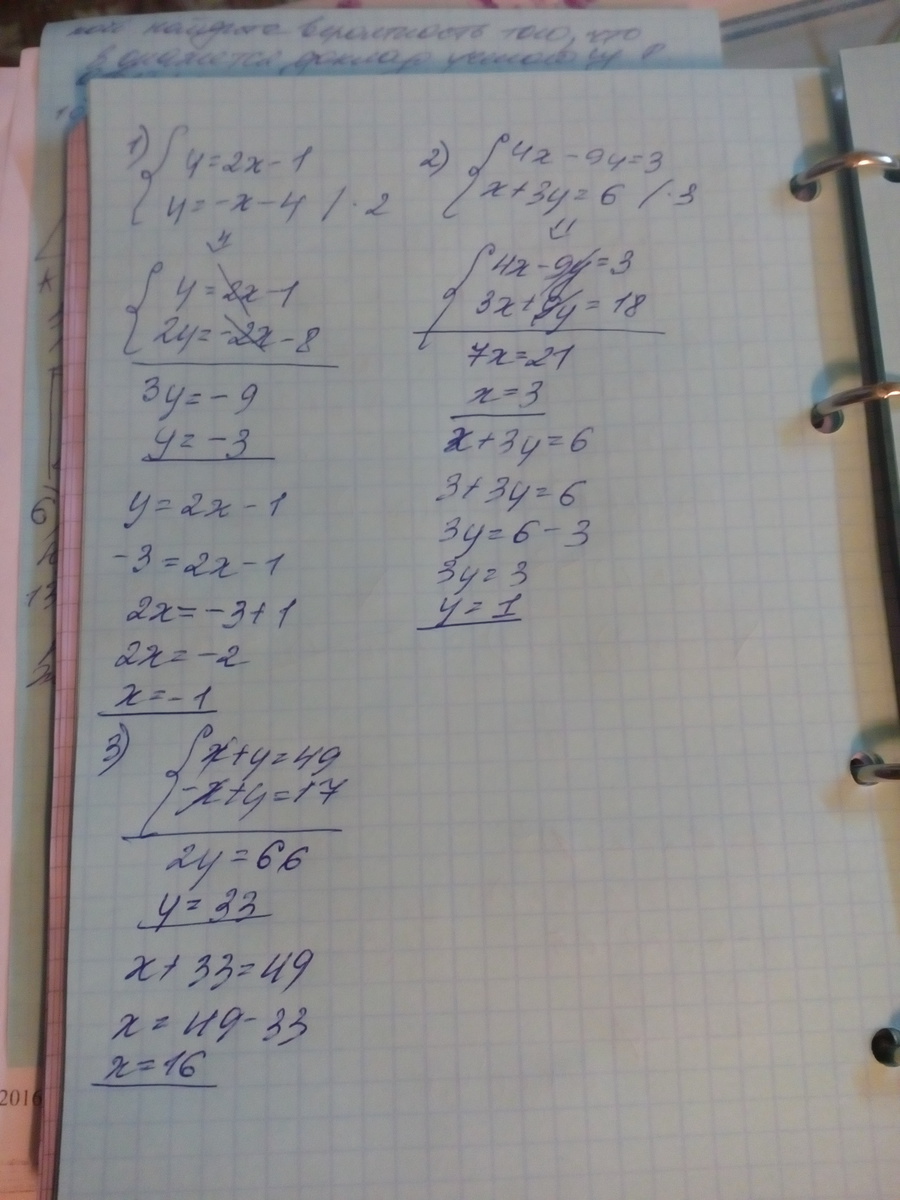 ной найдите вероятность того, что
1) { y = 2x - 1
y = -x - 4 / · 2
{ y = 2x - 1
2y = -2x - 8
3y = -9
y = -3
y = 2x - 1
-3 = 2x - 1
2x = -3 + 1
2x = -2
x = -1
2) { 4x - 9y = 3
x + 3y = 6 / · 3
{ 4x - 9y = 3
3x + 9y = 18
7x = 21
x = 3
x + 3y = 6
3 + 3y = 6
3y = 6 - 3
3y = 3
y = 1
3) { x + y = 49
-x + y = 17
2y = 66
y = 33
x + 33 = 49
x = 49 - 33
x = 16
6)
13
2016